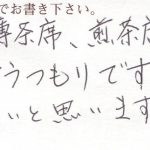 でお書き下さい。
専茶席、煎茶席
うつもりです
いと思います